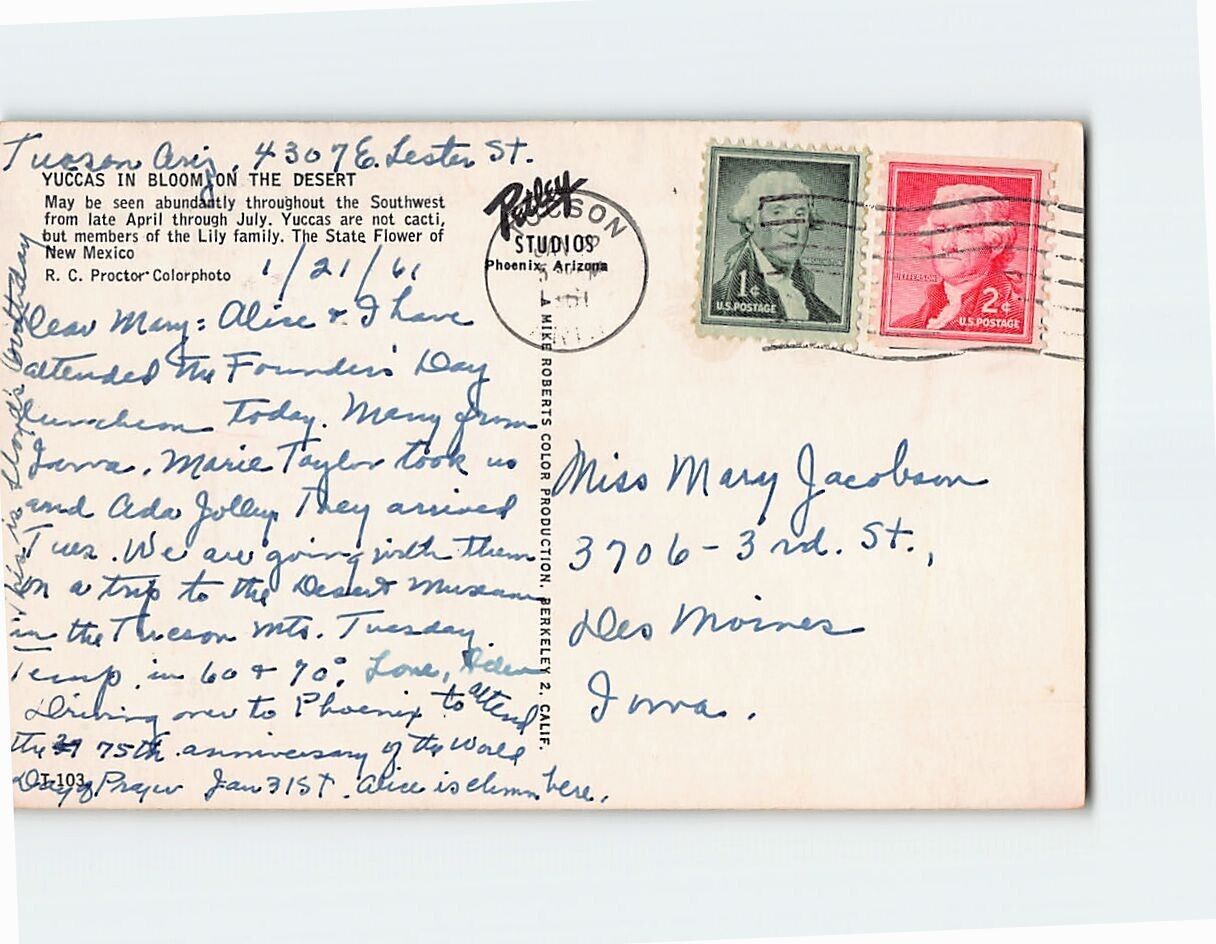 Tucson Ariz, 4307 E. Lester St.
YUCCAS IN BLOOM ON THE DESERT
May be seen abundantly throughout the Southwest
from late April through July. Yuccas are not cacti,
but members of the Lily family. The State Flower of
New Mexico
R. C. Proctor Colorphoto
1/21/61
Dear Mary: Alice & I have
attended the Founders' Day
luncheon today. Many from
Iowa. Marie Taylor took us
and Ada Jolley. They arrived
Tues. We are going with them
on a trip to the Desert Museum
in the Tucson Mts. Tuesday.
Temp. in 60 & 70°. Love,
Driving over to Phoenix to attend
the 75th anniversary of the World
Day of Prayer Jan 31st. Alice is here.
This is Lloyd's birthday
T-103
Petley
STUDIOS
Phoenix, Arizona
TUCSON
MIKE ROBERTS COLOR PRODUCTION, BERKELEY 2, CALIF.
WASHINGTON
1¢
U.S. POSTAGE
JEFFERSON
2¢
U.S. POSTAGE
Miss Mary Jacobson
3706 - 3rd. St.,
Des Moines
Iowa.